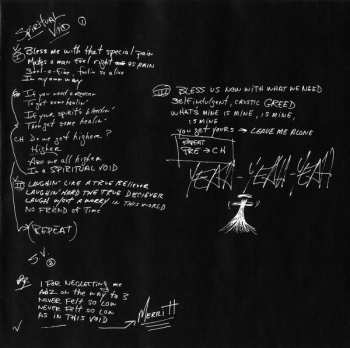 SPIRITUAL VOID ①
I Bless me with that special pain
Makes a man feel right as pain
feelin so alive
In my own way
If you want a
To get some healin'
If your spirit's breakin'
Then get some healin'
CH Do we get higher?
Higher
Are we all higher
In a SPIRITUAL VOID
II LAUGHIN' LIKE A TRUE BELIEVER
LAUGHIN' HARD THE TRUE DECIEVER
LAUGH W/OUT A WORRY IN THIS WORLD
NO FRIEND of Time
(REPEAT)
SV ②
BR 1 FOR NEGLECTING me
AND 2 on the way to 3
NEVER FELT SO LOW
NEVER FELT SO LOW
AS IN THIS VOID
MERRITT
III BLESS US NOW WITH WHAT WE NEED
SELF INDULGENT, CAUSTIC GREED
WHATS MINE IS MINE, IS MINE,
IS MINE
You get yours → LEAVE ME ALONE
REPEAT
PRE → CH
YEAH - YEAH - YEAH